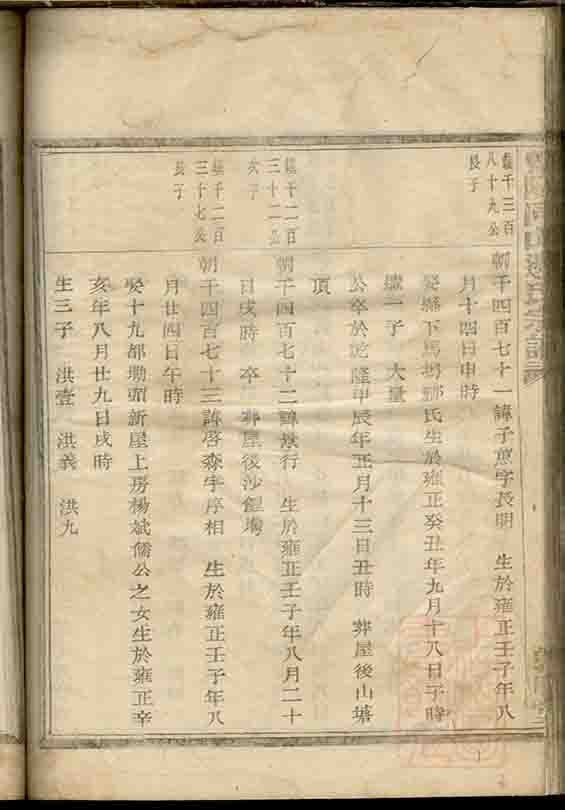 千三百
八十九公
長子
朝千四百七十一諱子 字長明 生於雍正壬子年八
月十四日申時
娶縣下馬 氏生於雍正癸丑年九月十八日子時
一子 大量
公卒於乾隆甲辰年正月十三日丑時 葬屋後山塘
頂
千二百
三十二公
次子
朝千四百七十二諱 行 生於雍正壬子年八月二十
日戌時 卒 葬屋後沙
千二百
三十七公
長子
朝千四百七十三諱啓森字序相 生於雍正壬子年八
月廿四日午時
娶十九都坳頭新屋上房楊斌儒公之女生於雍正辛
亥年八月廿九日戌時
生三子 洪壹 洪義 洪九
氏宗譜